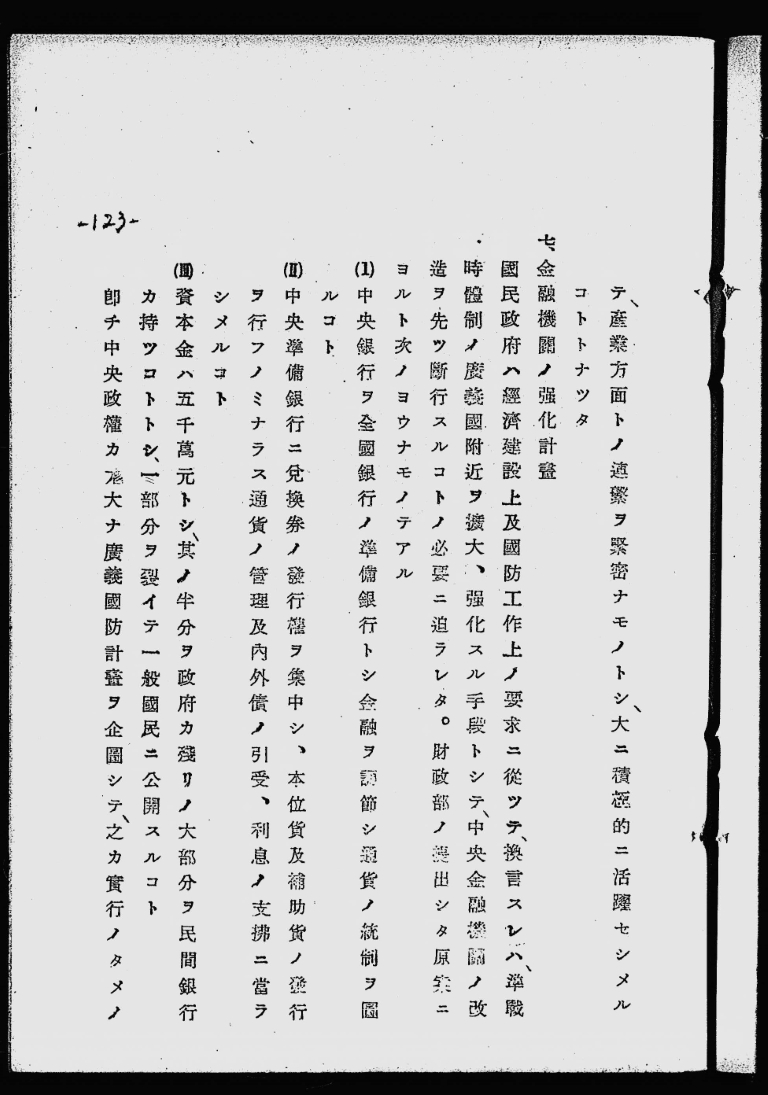 テ、産業方面トノ連繫ヲ緊密ナモノトシ、大ニ積極的ニ活躍セシメル
コトトナツタ
七、金融機關ノ强化計畫
國民政府ハ經濟建設上及國防工作上ノ要求ニ從ツテ、換言スレハ、準戰
時體制ノ廣義國附近ヲ擴大、强化スル手段トシテ、中央金融機關ノ改
造ヲ先ツ斷行スルコトノ必要ニ迫ラレタ。財政部ノ提出シタ原案ニ
ヨルト次ノヨウナモノテアル
(I)中央銀行ヲ全國銀行ノ準備銀行トシ金融ヲ調節シ通貨ノ統制ヲ圖
ルコト
(II)中央準備銀行ニ兌換券ノ發行權ヲ集中シ、本位貨及補助貨ノ發行
ヲ行フノミナラス通貨ノ管理及內外債ノ引受、利息ノ支拂ニ當ラ
シメルコト
(III)資本金ハ五千萬元トシ、其ノ半分ヲ政府カ殘リノ大部分ヲ民間銀行
カ持ツコトトシ、一部分ヲ裂イテ一般國民ニ公開スルコト
卽チ中央政權カ大ナ廣義國防計畫ヲ企圖シテ、之カ實行ノタメノ
-123-